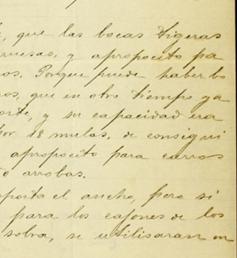 , que las bocas tigeras
ruesas, y apropocito pa
os. Porque puede haber bo
ros, que en otro tiempo ya
orte, y su capacidad era
por 18 mulas, de consigui
apropocito para carros
to arrobas.
oporta el ancho, pero si
para los cajones de los
sobra, se utilisaran en